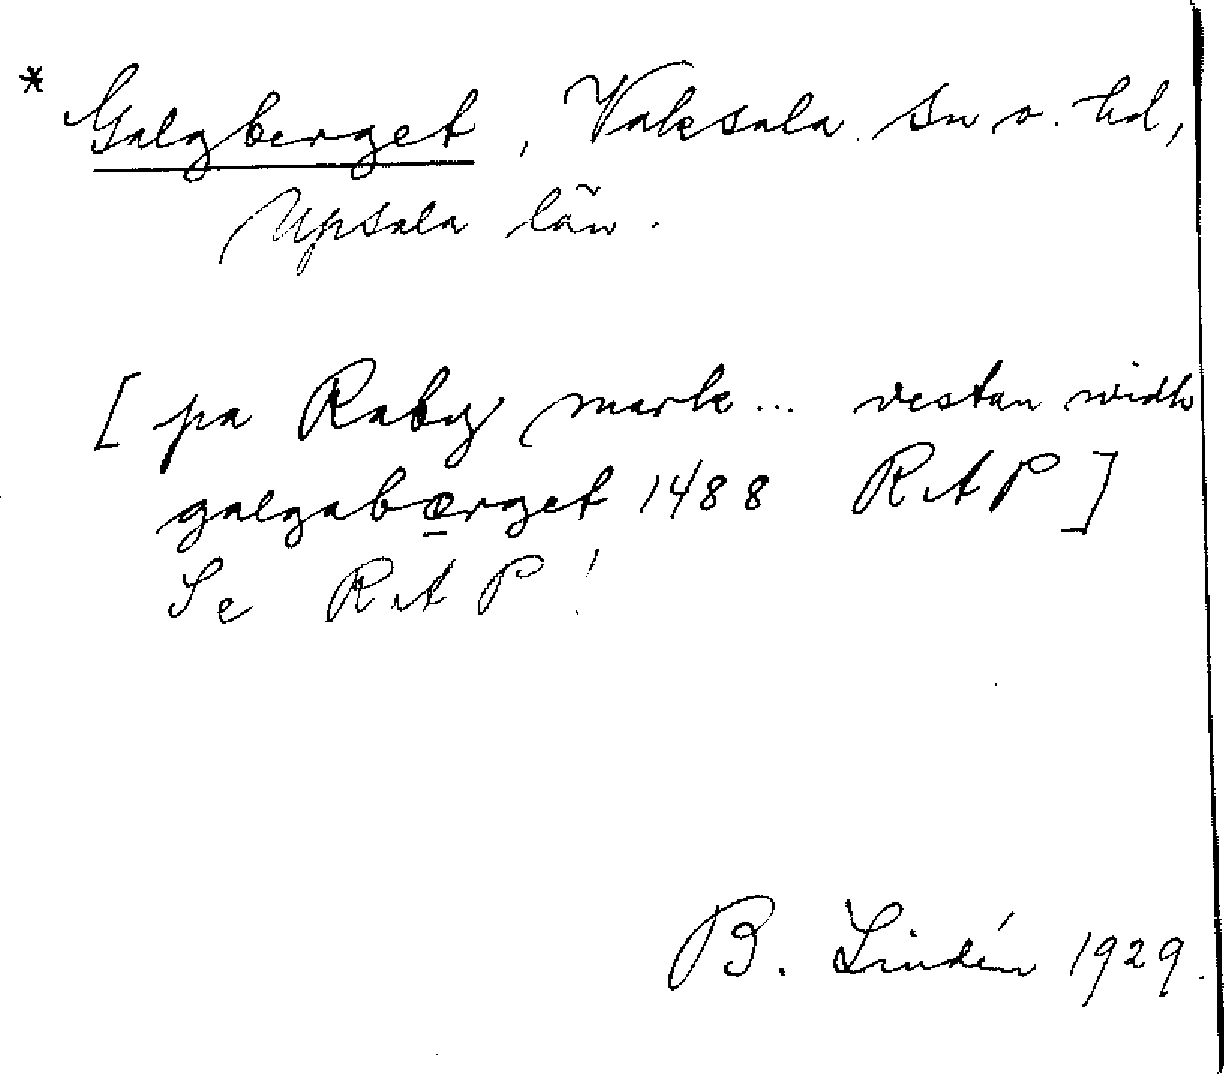 * Galgberget, Vaksala sn o. hd,
Upsala län.
[ pa Raby mark... vestan widh
galgabærget 1488 RAP ]
Se RAP!
B. Lindén 1929.